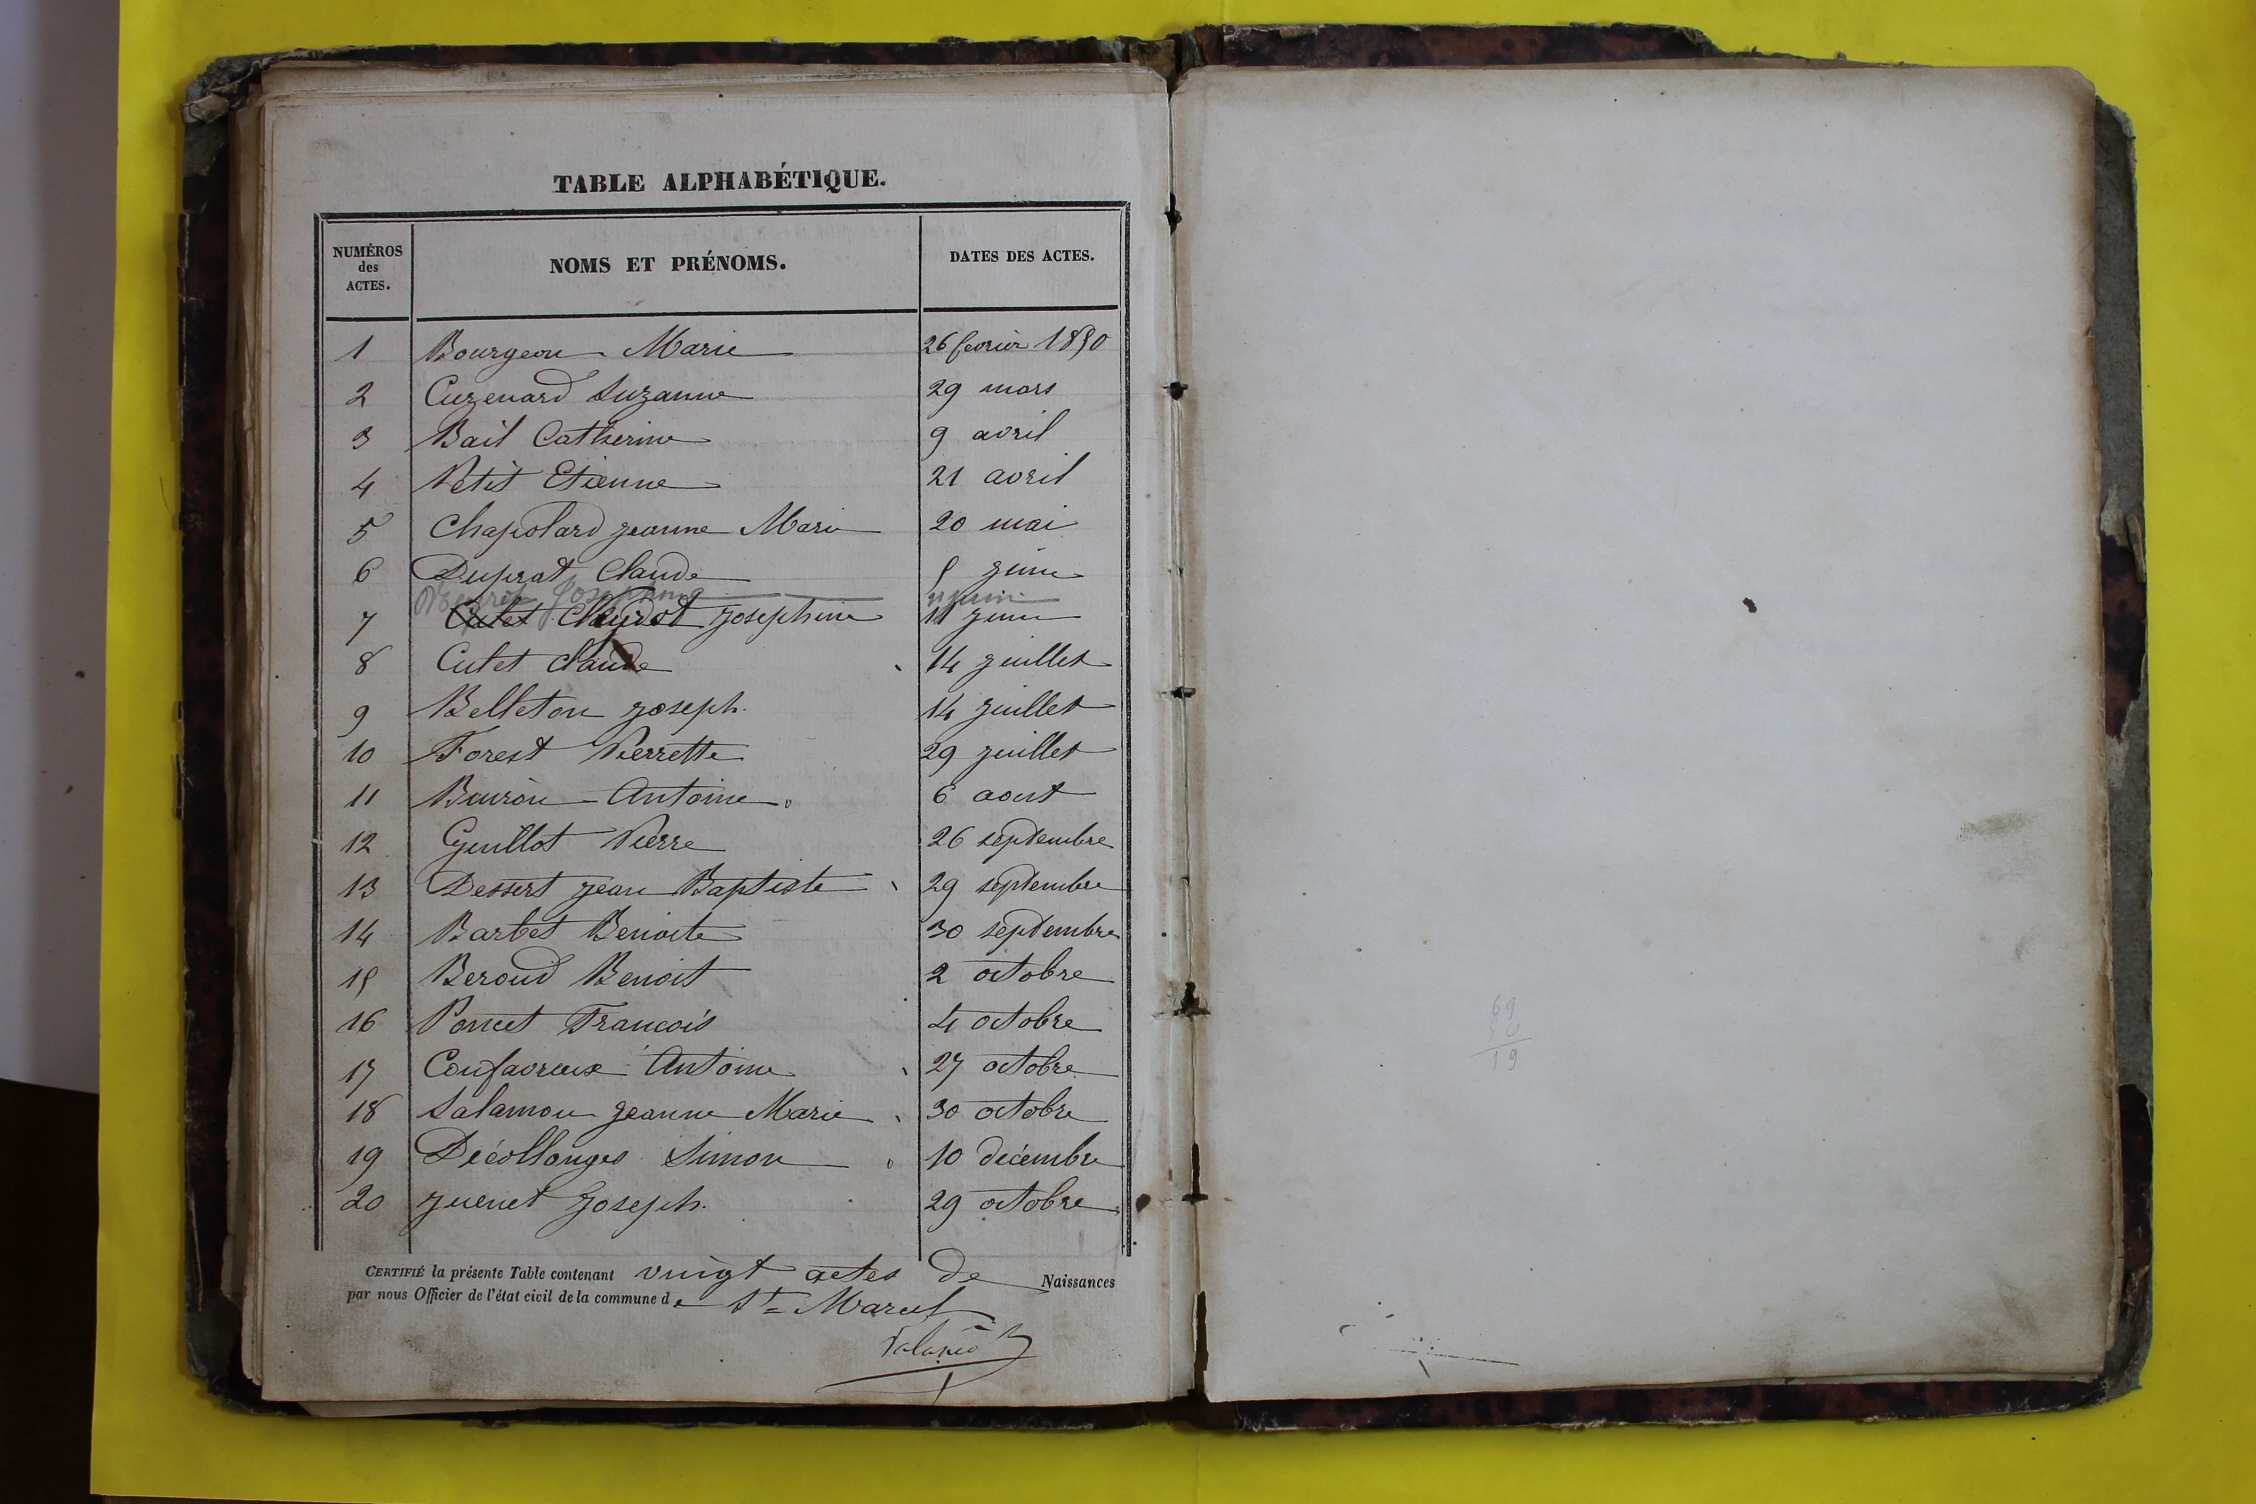 TABLE ALPHABÉTIQUE.
NUMÉROS des ACTES. NOMS ET PRÉNOMS. DATES DES ACTES.
1 Bourgeon Marie 26 fevrier 1850
2 Curenard Suzanne 29 mars
3 Bail Catherine 9 avril
4 Petit Etienne 21 avril
5 Chapolard jeanne Marie 20 mai
6 Duprat Claude 5 juin
Josephine 11 juin
7 Cutet Claudot josephine 11 juin
8 Cutet Claude 14 juillet
9 Belleton joseph. 14 juillet
10 Forest Pierrette 29 juillet
11 Antoine 6 aout
12 Guillot Pierre 26 septembre
13 Dessert jean Baptiste 29 septembre
14 Barbet Benoite 30 septembre
15 Beroud Benoit 2 octobre
16 Poncet Francois 4 octobre
17 Confavreux Antoine 27 octobre
18 Salamon jeanne Marie 30 octobre
19 Décollonges Simon 10 décembre
20 juenet joseph. 29 octobre
CERTIFIÉ la présente Table contenant vingt actes de Naissances
par nous Officier de l'état civil de la commune de St= Marcel
69
19